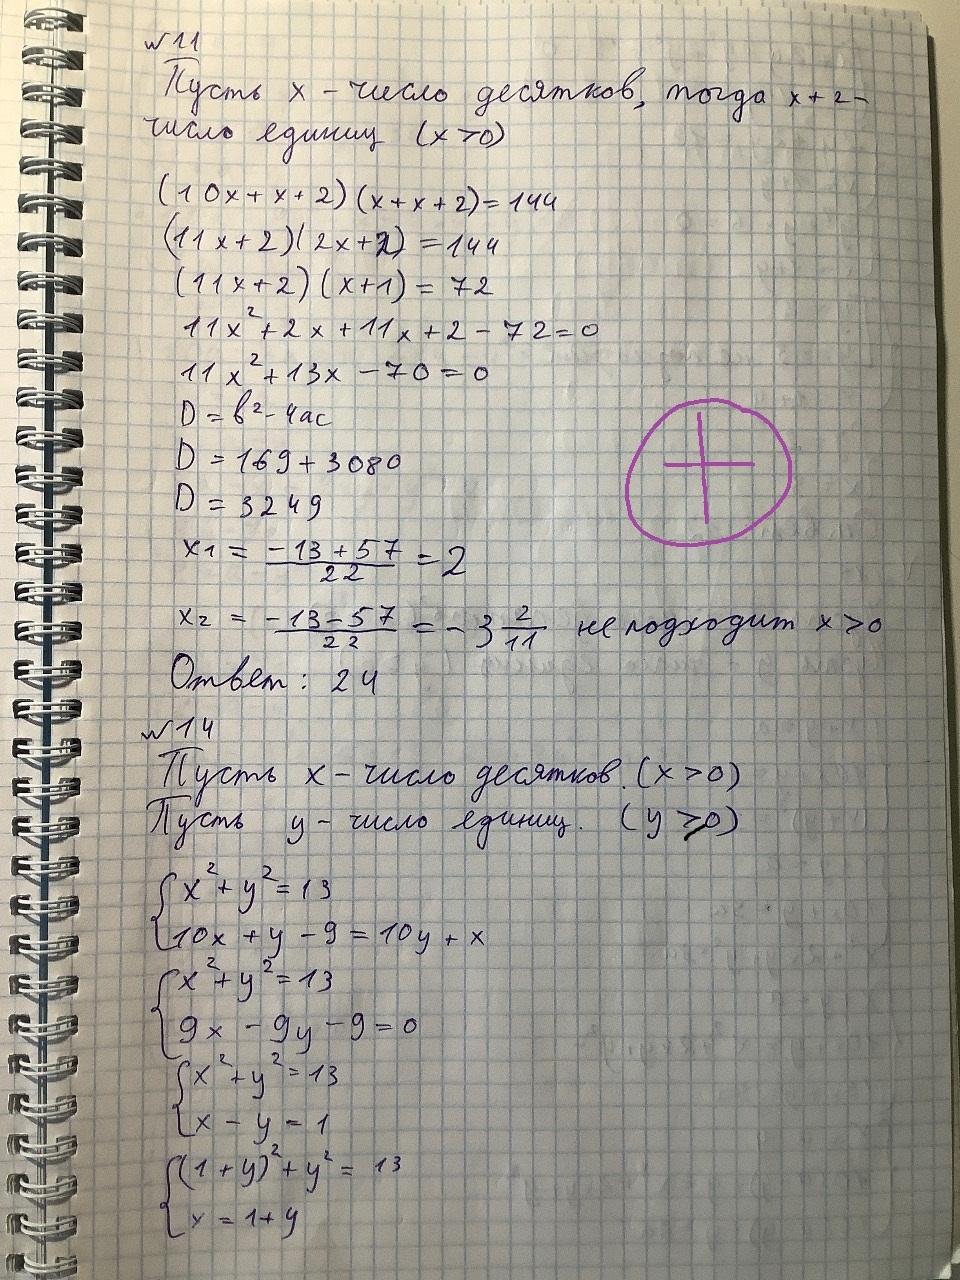 №11
Пусть x - число десятков, тогда x+2-
число единиц (x>0)
(10x+x+2)(x+x+2)=144
(11x+2)(2x+2)=144
(11x+2)(x+1)=72
11x²+2x+11x+2-72=0
11x²+13x-70=0
D=b²-4ac
D=169+3080
D=3249
x₁ = (-13+57)/22 = 2
x₂ = (-13-57)/22 = -3 2/11 не подходит x>0
Ответ: 24
№14
Пусть x - число десятков. (x>0)
Пусть y - число единиц. (y≥0)
{x²+y²=13
10x+y-9=10y+x
{x²+y²=13
9x-9y-9=0
{x²+y²=13
x-y=1
{(1+y)²+y²=13
x=1+y